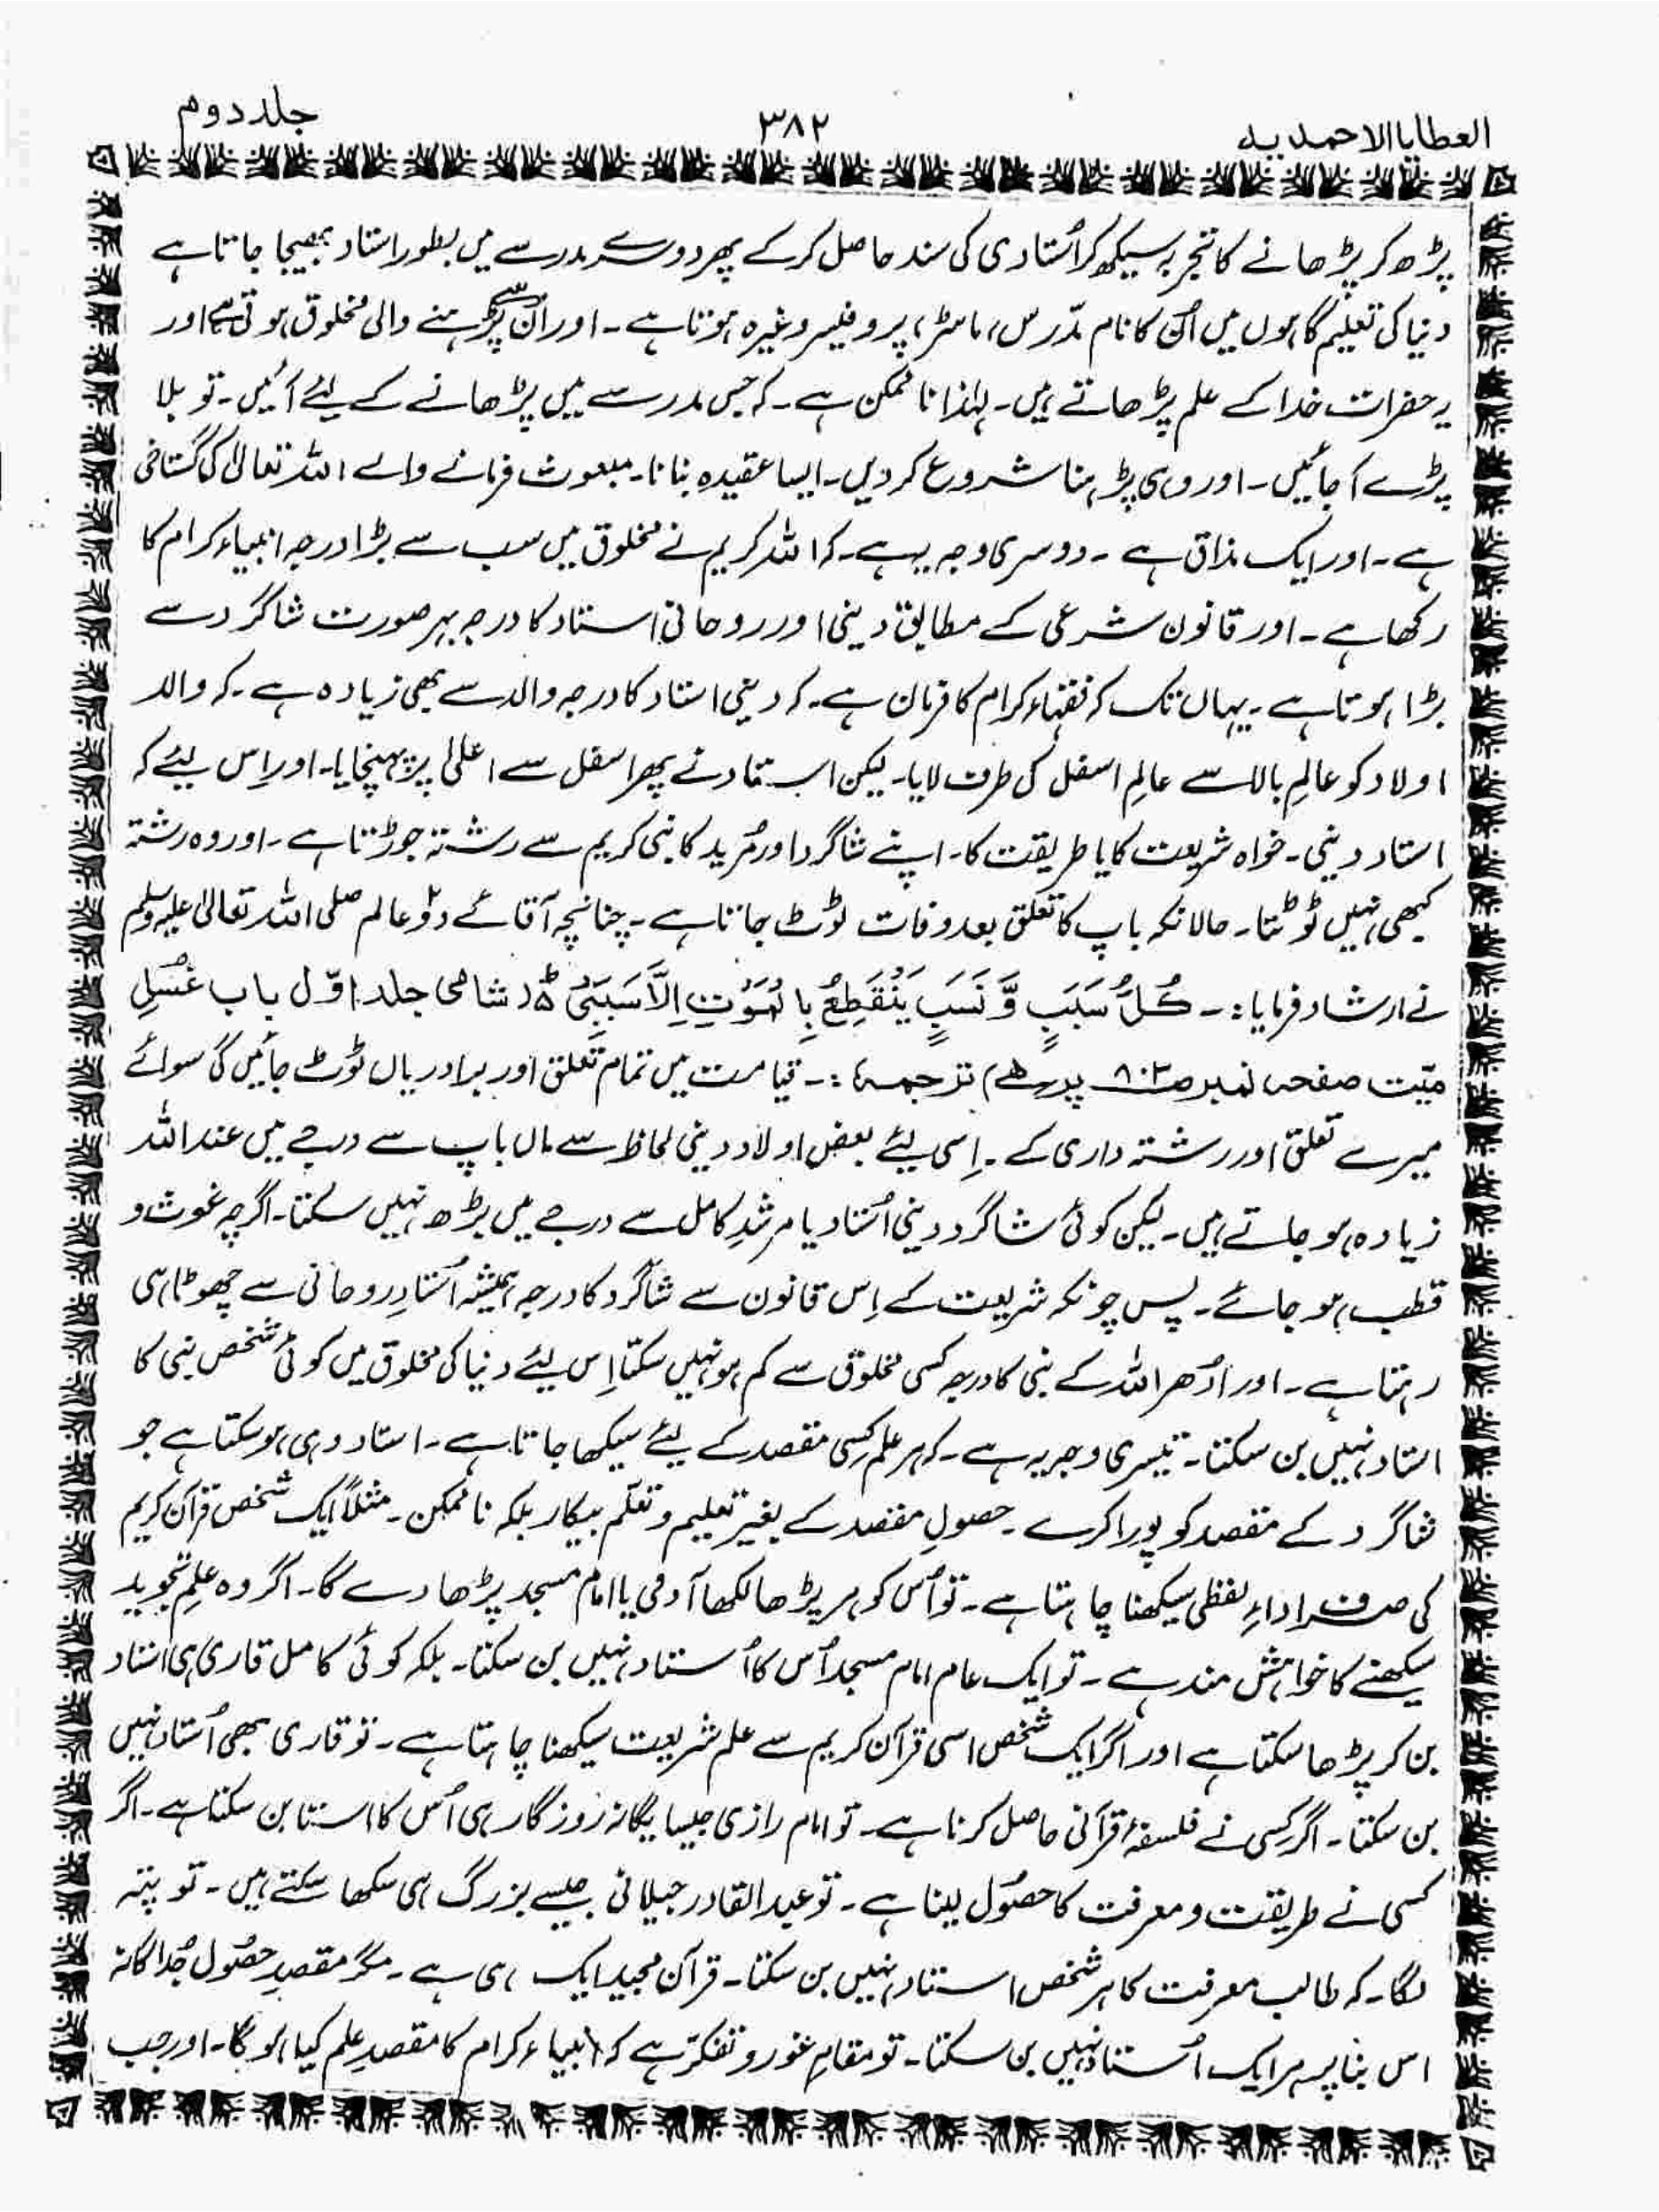 العطایا الاحمدیہ
۳۸۲
جلد دوم
پڑھ کر پڑھانے کا تجربہ سیکھ کر اُستادی کی سند حاصل کر کے پھر دوسرے مدرسے میں بطور استاد بھیجا جاتا ہے
دنیا کی تعلیم گاہوں میں اُن کا نام مدّرس، ماسٹر، پروفیسر وغیرہ ہوتا ہے ۔ اور اُن سے پڑہنے والی مخلوق ہوتی ہے اور
یہ حضرات خدا کے علم پڑھاتے ہیں۔ لہٰذا نا ممکن ہے ۔ کہ جس مدرسے میں پڑھانے کے لیئے آئیں۔ تو بلا
پڑے آ جائیں ۔ اور وہی پڑہنا شروع کر دیں۔ ایسا عقیدہ بنانا۔ مبعوث فرمانے والے اللہ تعالیٰ کی گستاخی
ہے ۔ اور ایک مذاق ہے ۔ دوسری وجہ یہ ہے ۔ کہ اللہ کریم نے مخلوق میں سب سے بڑا درجہ انبیاء کرام کا
رکھا ہے ۔ اور قانون شرعی کے مطابق دینی اور روحانی استاد کا درجہ بہر صورت شاگرد سے
بڑا ہوتا ہے ۔ یہاں تک کہ فقہاء کرام کا فرمان ہے۔ کہ دینی استاد کا درجہ والد سے بھی زیادہ ہے ۔ کہ والد
اولاد کو عالمِ بالا سے عالمِ اسفل کی طرف لایا۔ لیکن استاد نے پھر اسفل سے اعلیٰ پر پہنچایا۔ اور اِس لیئے کہ
استاد دینی ۔ خواہ شریعت کا یا طریقت کا۔ اپنے شاگرد اور مُرید کا نبی کریم سے رشتہ جوڑتا ہے ۔ اور وہ رشتہ
کبھی نہیں ٹوٹتا۔ حالانکہ باپ کا تعلق بعد وفات ٹوٹ جاتا ہے ۔ چنانچہ آقائے دو عالم صلی اللہ تعالیٰ علیہ وسلم
نے ارشاد فرمایا :۔ کُلُّ سَبَبٍ وَّ نَسَبٍ یَنْقَطِعُ بِالْمَوْتِ اِلَّا سَبَبِیْ (شامی جلد اوّل باب غُسْلِ
میّت صفحہ نمبر ص۸۰۳ پر ہے) ترجمہ :۔ قیامت میں تمام تعلق اور برادریاں ٹوٹ جائیں گی سوائے
میرے تعلق اور رشتہ داری کے ۔ اِسی لیئے بعض اولاد دینی لحاظ سے ماں باپ سے درجے میں عند اللہ
زیادہ ہو جاتے ہیں۔ لیکن کوئی شاگرد دینی اُستاد یا مرشدِ کامل سے درجے میں بڑھ نہیں سکتا۔ اگرچہ غوث و
قطب ہو جائے ۔ پس چونکہ شریعت کے اِس قانون سے شاگرد کا درجہ ہمیشہ اُستادِ روحانی سے چھوٹا ہی
رہتا ہے ۔ اور اُدھر اللہ کے نبی کا درجہ کسی مخلوق سے کم ہو نہیں سکتا اِس لیئے دنیا کی مخلوق میں کوئی شخص نبی کا
استاد نہیں بن سکتا ۔ تیسری وجہ یہ ہے ۔ کہ ہر علم کِسی مقصد کے لیئے سیکھا جاتا ہے ۔ استاد وہی ہو سکتا ہے جو
شاگرد کے مقصد کو پورا کرے ۔ حصولِ مقصد کے بغیر تعلیم و تعلّم بیکار بلکہ نا ممکن ۔ مثلاً ایک شخص قرآن کریم
کی صرف اداءِ لفظی سیکھنا چاہتا ہے ۔ تو اُس کو ہر پڑھا لکھا آدمی یا امام مسجد پڑھا دے گا۔ اگر وہ علمِ تجوید
سیکھنے کا خواہش مند ہے ۔ تو ایک عام امام مسجد اُس کا اُستاد نہیں بن سکتا۔ بلکہ کوئی کامل قاری ہی استاد
بن کر پڑھا سکتا ہے اور اگر ایک شخص اسی قرآن کریم سے علم شریعت سیکھنا چاہتا ہے ۔ تو قاری بھی اُستاد نہیں
بن سکتا ۔ اگر کِسی نے فلسفۂ قرآنی حاصل کرنا ہے ۔ تو امام رازی جیسا یگانہ روزگار ہی اُس کا استا بن سکتا ہے ۔ اگر
کسی نے طریقت و معرفت کا حصُول لینا ہے ۔ تو عبد القادر جیلانی جیسے بزرگ ہی سکھا سکتے ہیں ۔ تو پتہ
لگا۔ کہ طالب معرفت کا ہر شخص استاد نہیں بن سکتا ۔ قرآن مجید ایک ہی ہے ۔ مگر مقصدِ حصُول جُداگانہ
اس بنا پر ہر ایک اُستاد نہیں بن سکتا۔ تو مقامِ غور و تفکّر ہے کہ انبیاء کرام کا مقصدِ علم کیا ہو گا۔ اور جب